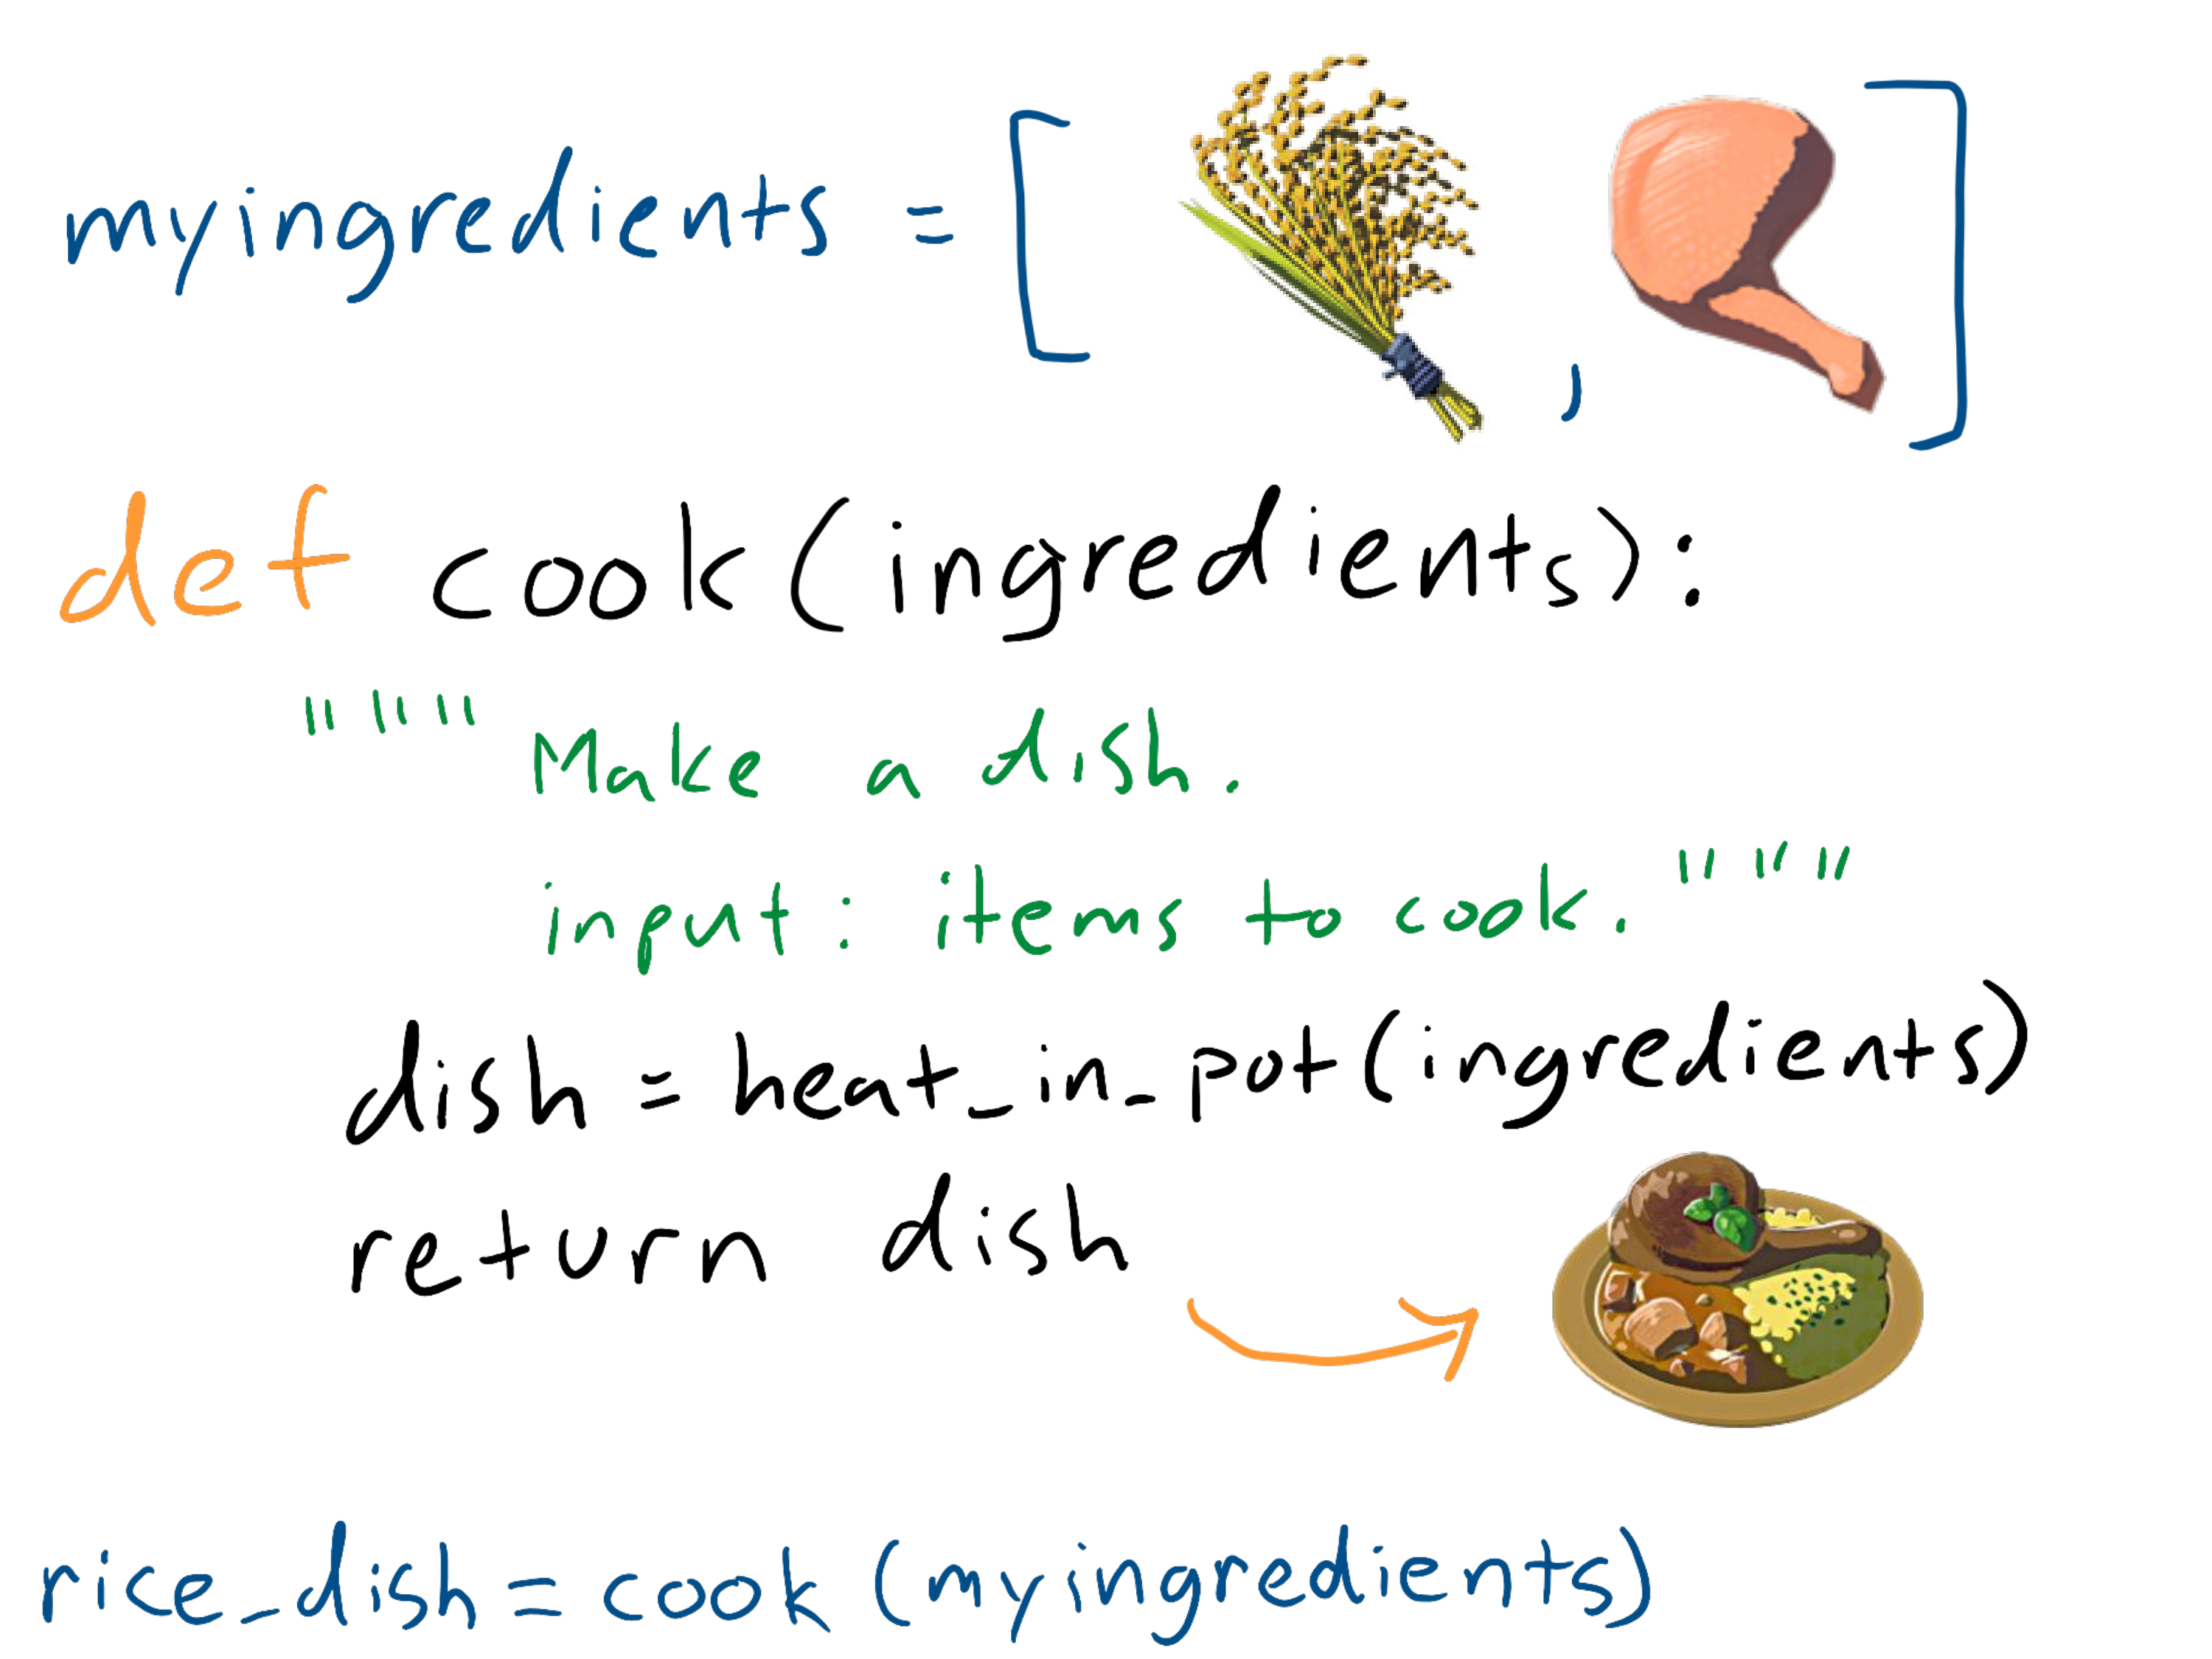 myingredients = [ , ]
def cook(ingredients):
""" Make a dish.
input: items to cook. """
dish = heat_in_pot(ingredients)
return dish
rice_dish = cook (myingredients)